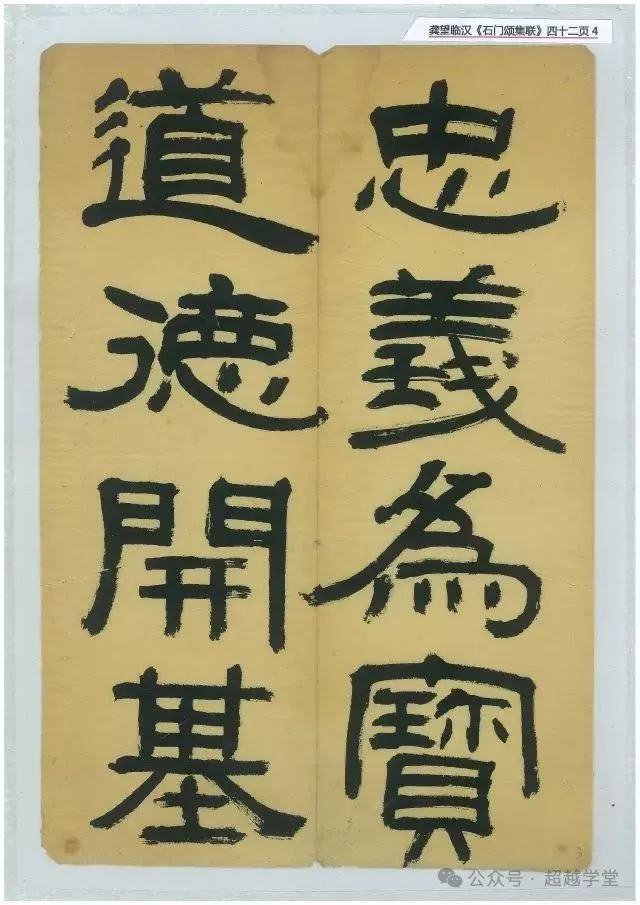 龚望临汉《石门颂集联》四十二页 4
忠義為寶
道德開基
3
3
公众号 · 超越学堂